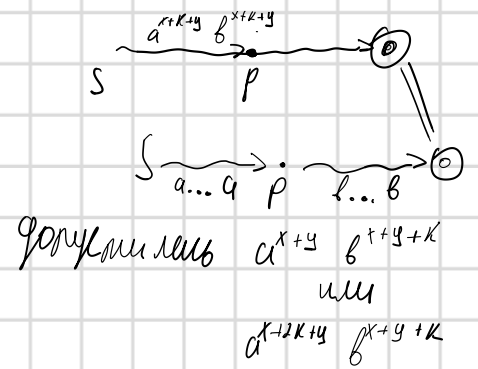 a^{x+k+y} b^{x+k+y}
S p
S a...a p b...b
допустилась a^{x+y} b^{x+y+k}
или
a^{x+2k+y} b^{x+y+k}